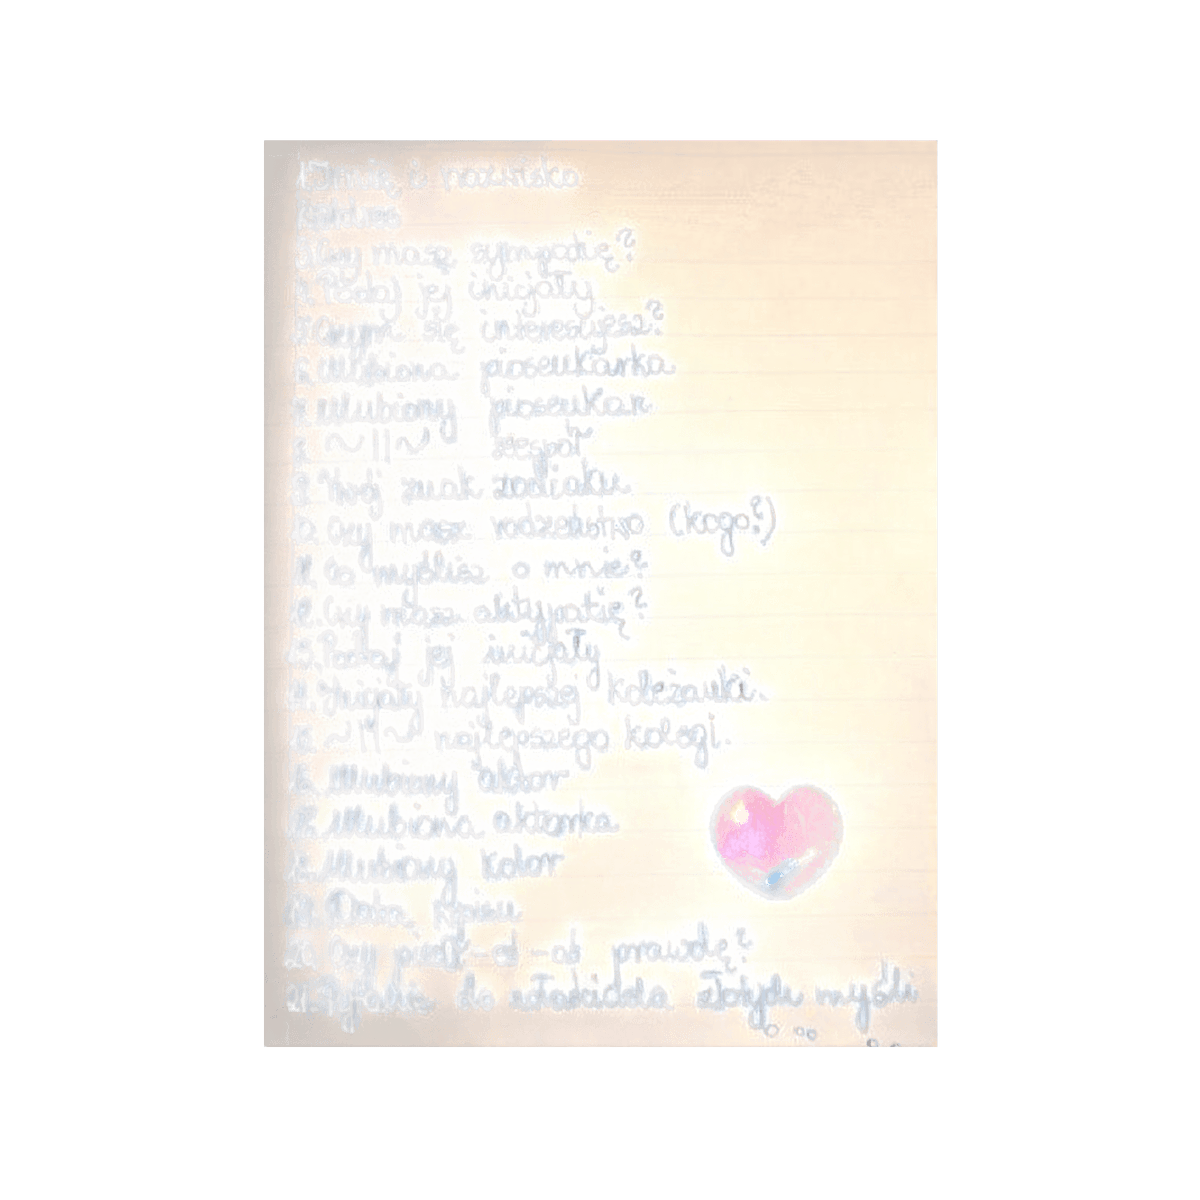 1. Imię i nazwisko
3. Czy masz sympatię?
4. Podaj jej inicjały
5. Czym się interesujesz?
6. Ulubiona piosenkarka
7. Ulubiony piosenkarz
8. ~||~ zespół
9. Twój znak zodiaku
10. Czy masz rodzeństwo (kogo?)
11. Co myślisz o mnie?
12. Czy masz aktypatię?
13. Podaj jej inicjały
14. Inicjały najlepszej koleżanki.
15. ~||~ najlepszego kolegi.
16. Ulubiony aktor
17. Ulubiona aktorka
18. Ulubiony kolor
19. Data wpisu
20. Czy pisał-eś-aś prawdę?
21. do złotych myśli